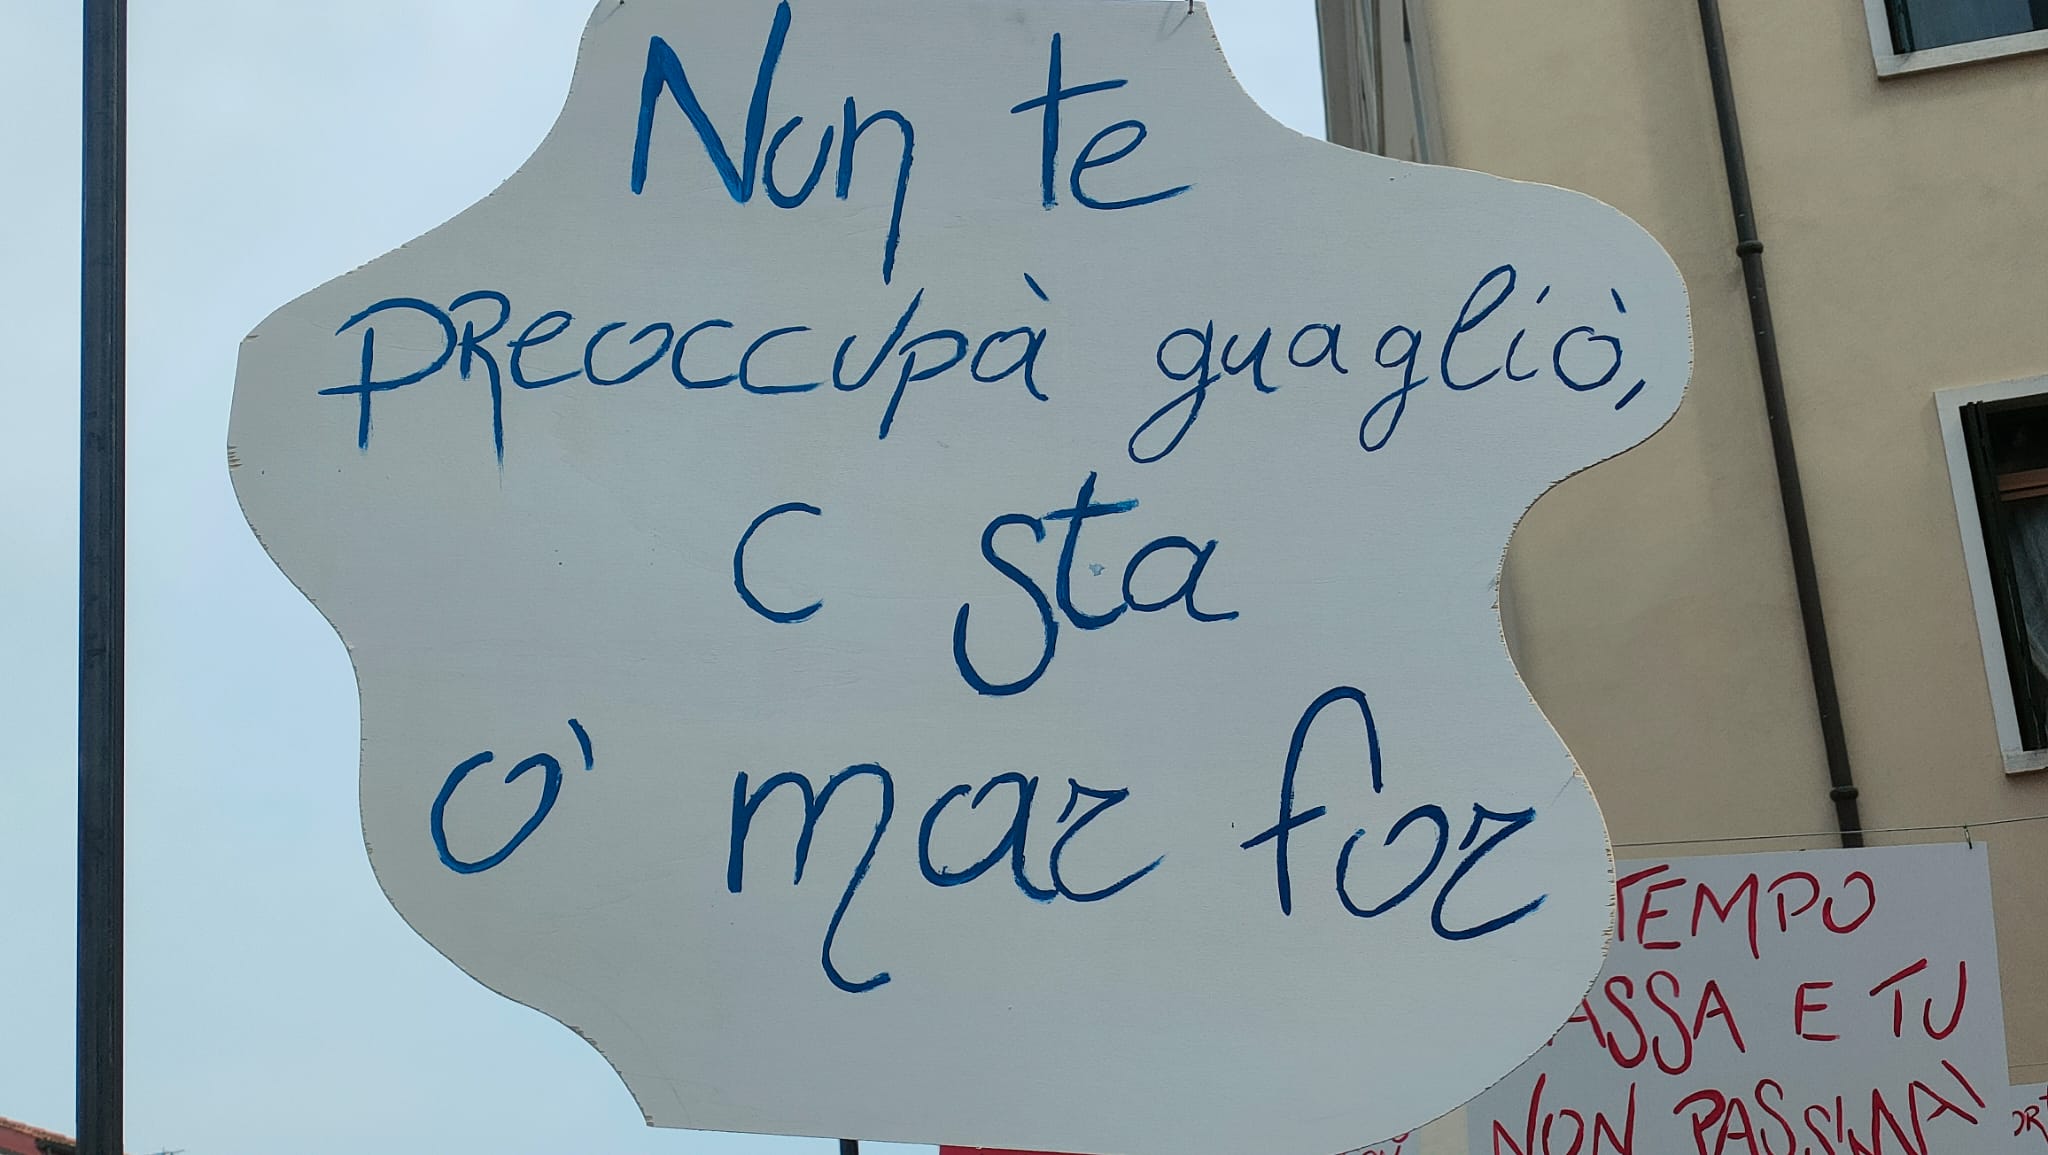 Non te
preoccupà guagliò,
c sta
o' mar for
TEMPO
ASSA E TU
NON PASSI MAI